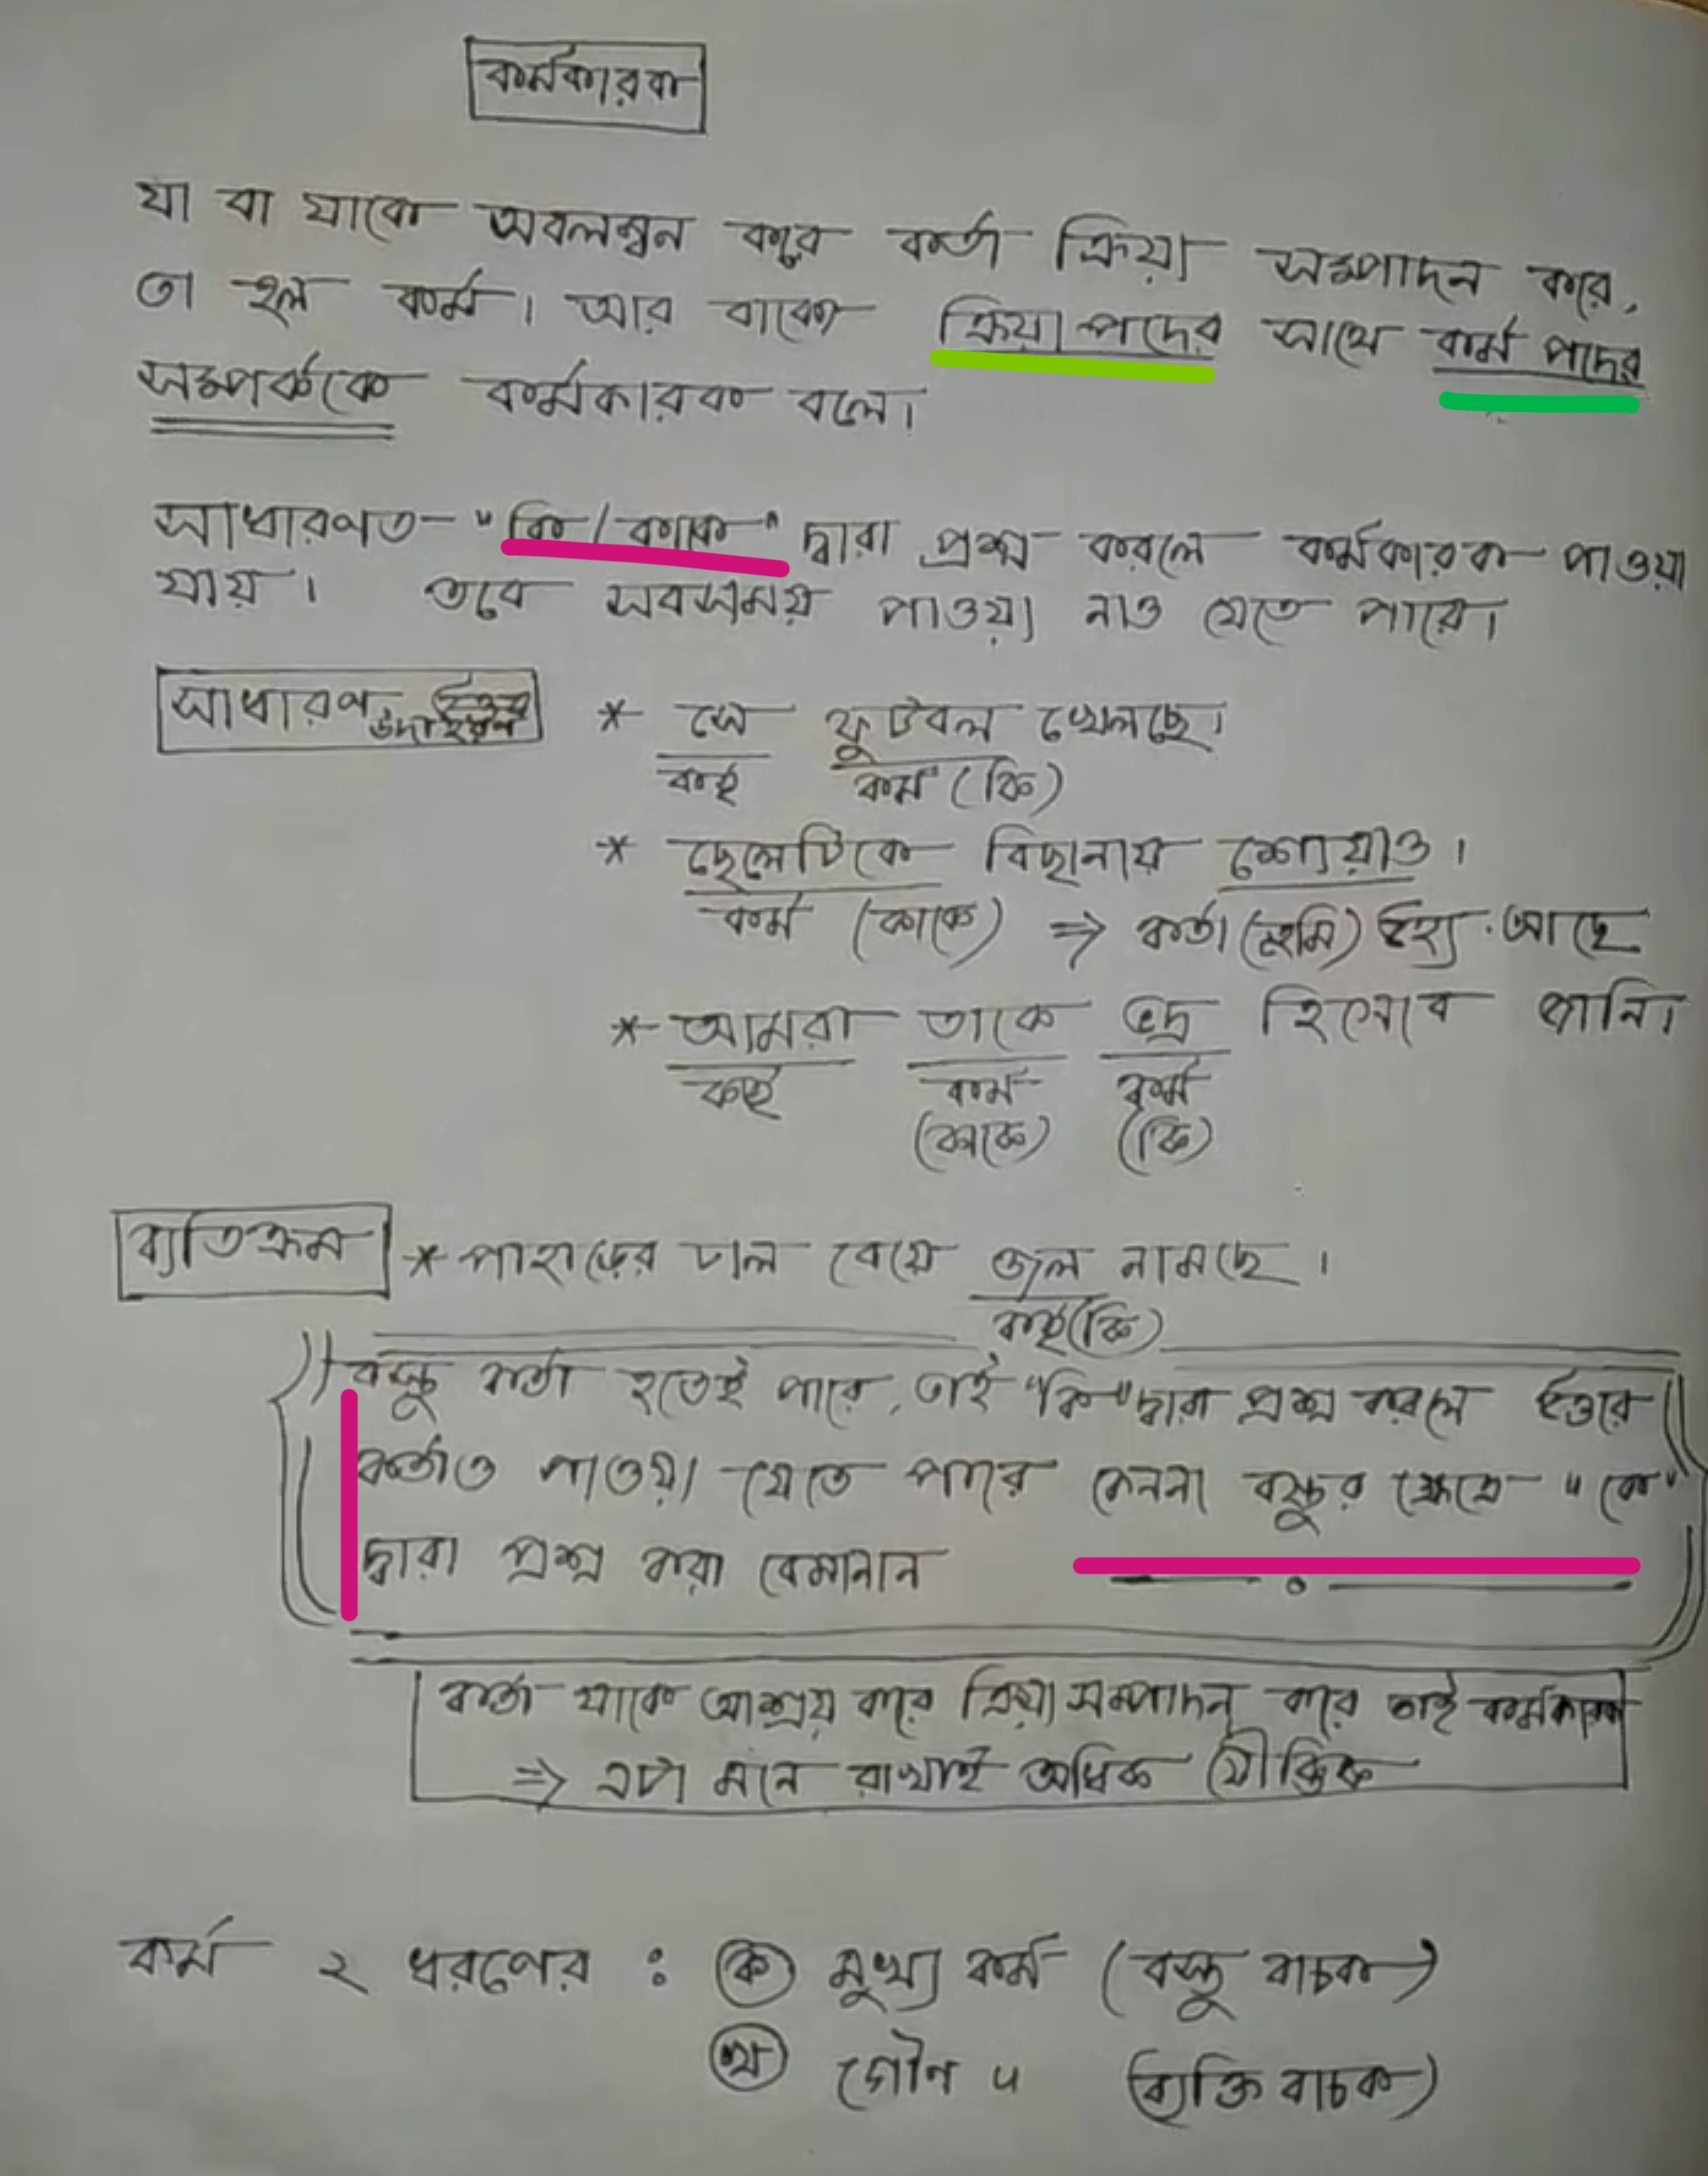 কর্মকারক
যা বা যাকে অবলম্বন করে কর্তা ক্রিয়া সম্পাদন করে,
তা হল কর্ম। আর বাক্যে ক্রিয়া পদের সাথে কর্ম পদের
সম্পর্ককে কর্মকারক বলে।
সাধারণত "কি/কাকে" দ্বারা প্রশ্ন করলে কর্মকারক পাওয়া
যায়। তবে সবসময় পাওয়া নাও যেতে পারে।
সাধারণ উদাহরণ * সে ফুটবল খেলছে।
কর্তৃ কর্ম (কি)
* ছেলেটিকে বিছানায় শোয়াও।
কর্ম (কাকে) ⇒ কর্তা (তুমি) উহ্য আছে
* আমরা তাকে ভদ্র হিসেবে জানি।
কর্তৃ কর্ম কর্ম
(কাকে) (কি)
ব্যতিক্রম * পাহাড়ের ঢাল বেয়ে জল নামছে।
কর্তৃ (কি)
বস্তু কর্তা হতেই পারে, তাই "কি" দ্বারা প্রশ্ন করলে উত্তরে
কর্তাও পাওয়া যেতে পারে কেননা বস্তুর ক্ষেত্রে "কে"
দ্বারা প্রশ্ন করা বেমানান
কর্তা যাকে আশ্রয় করে ক্রিয়া সম্পাদন করে তাই কর্মকারক
⇒ এটা মনে রাখাই অধিক যৌক্তিক
কর্ম ২ ধরণের : (ক) মুখ্য কর্ম (বস্তু বাচক)
(খ) গৌণ " (ব্যক্তি বাচক)